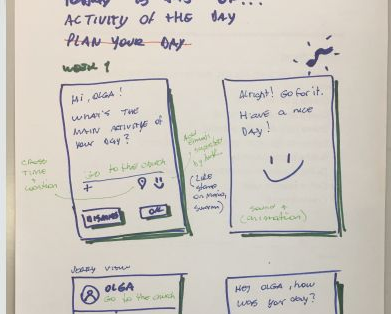 ACTIVITY OF THE DAY
PLAN YOUR DAY
WEEK 1
Hi, OLGA!
WHAT'S THE
MAIN ACTIVITY OF
YOUR DAY?
Go to the church
+
CROSS
TIME +
location
Add
(LIKE
DISMISS
OK
Alright! Go for it.
Have a nice
DAY!
sound +
(animation)
OLGA
Go to the church
HEY OLGA, how
was your day?